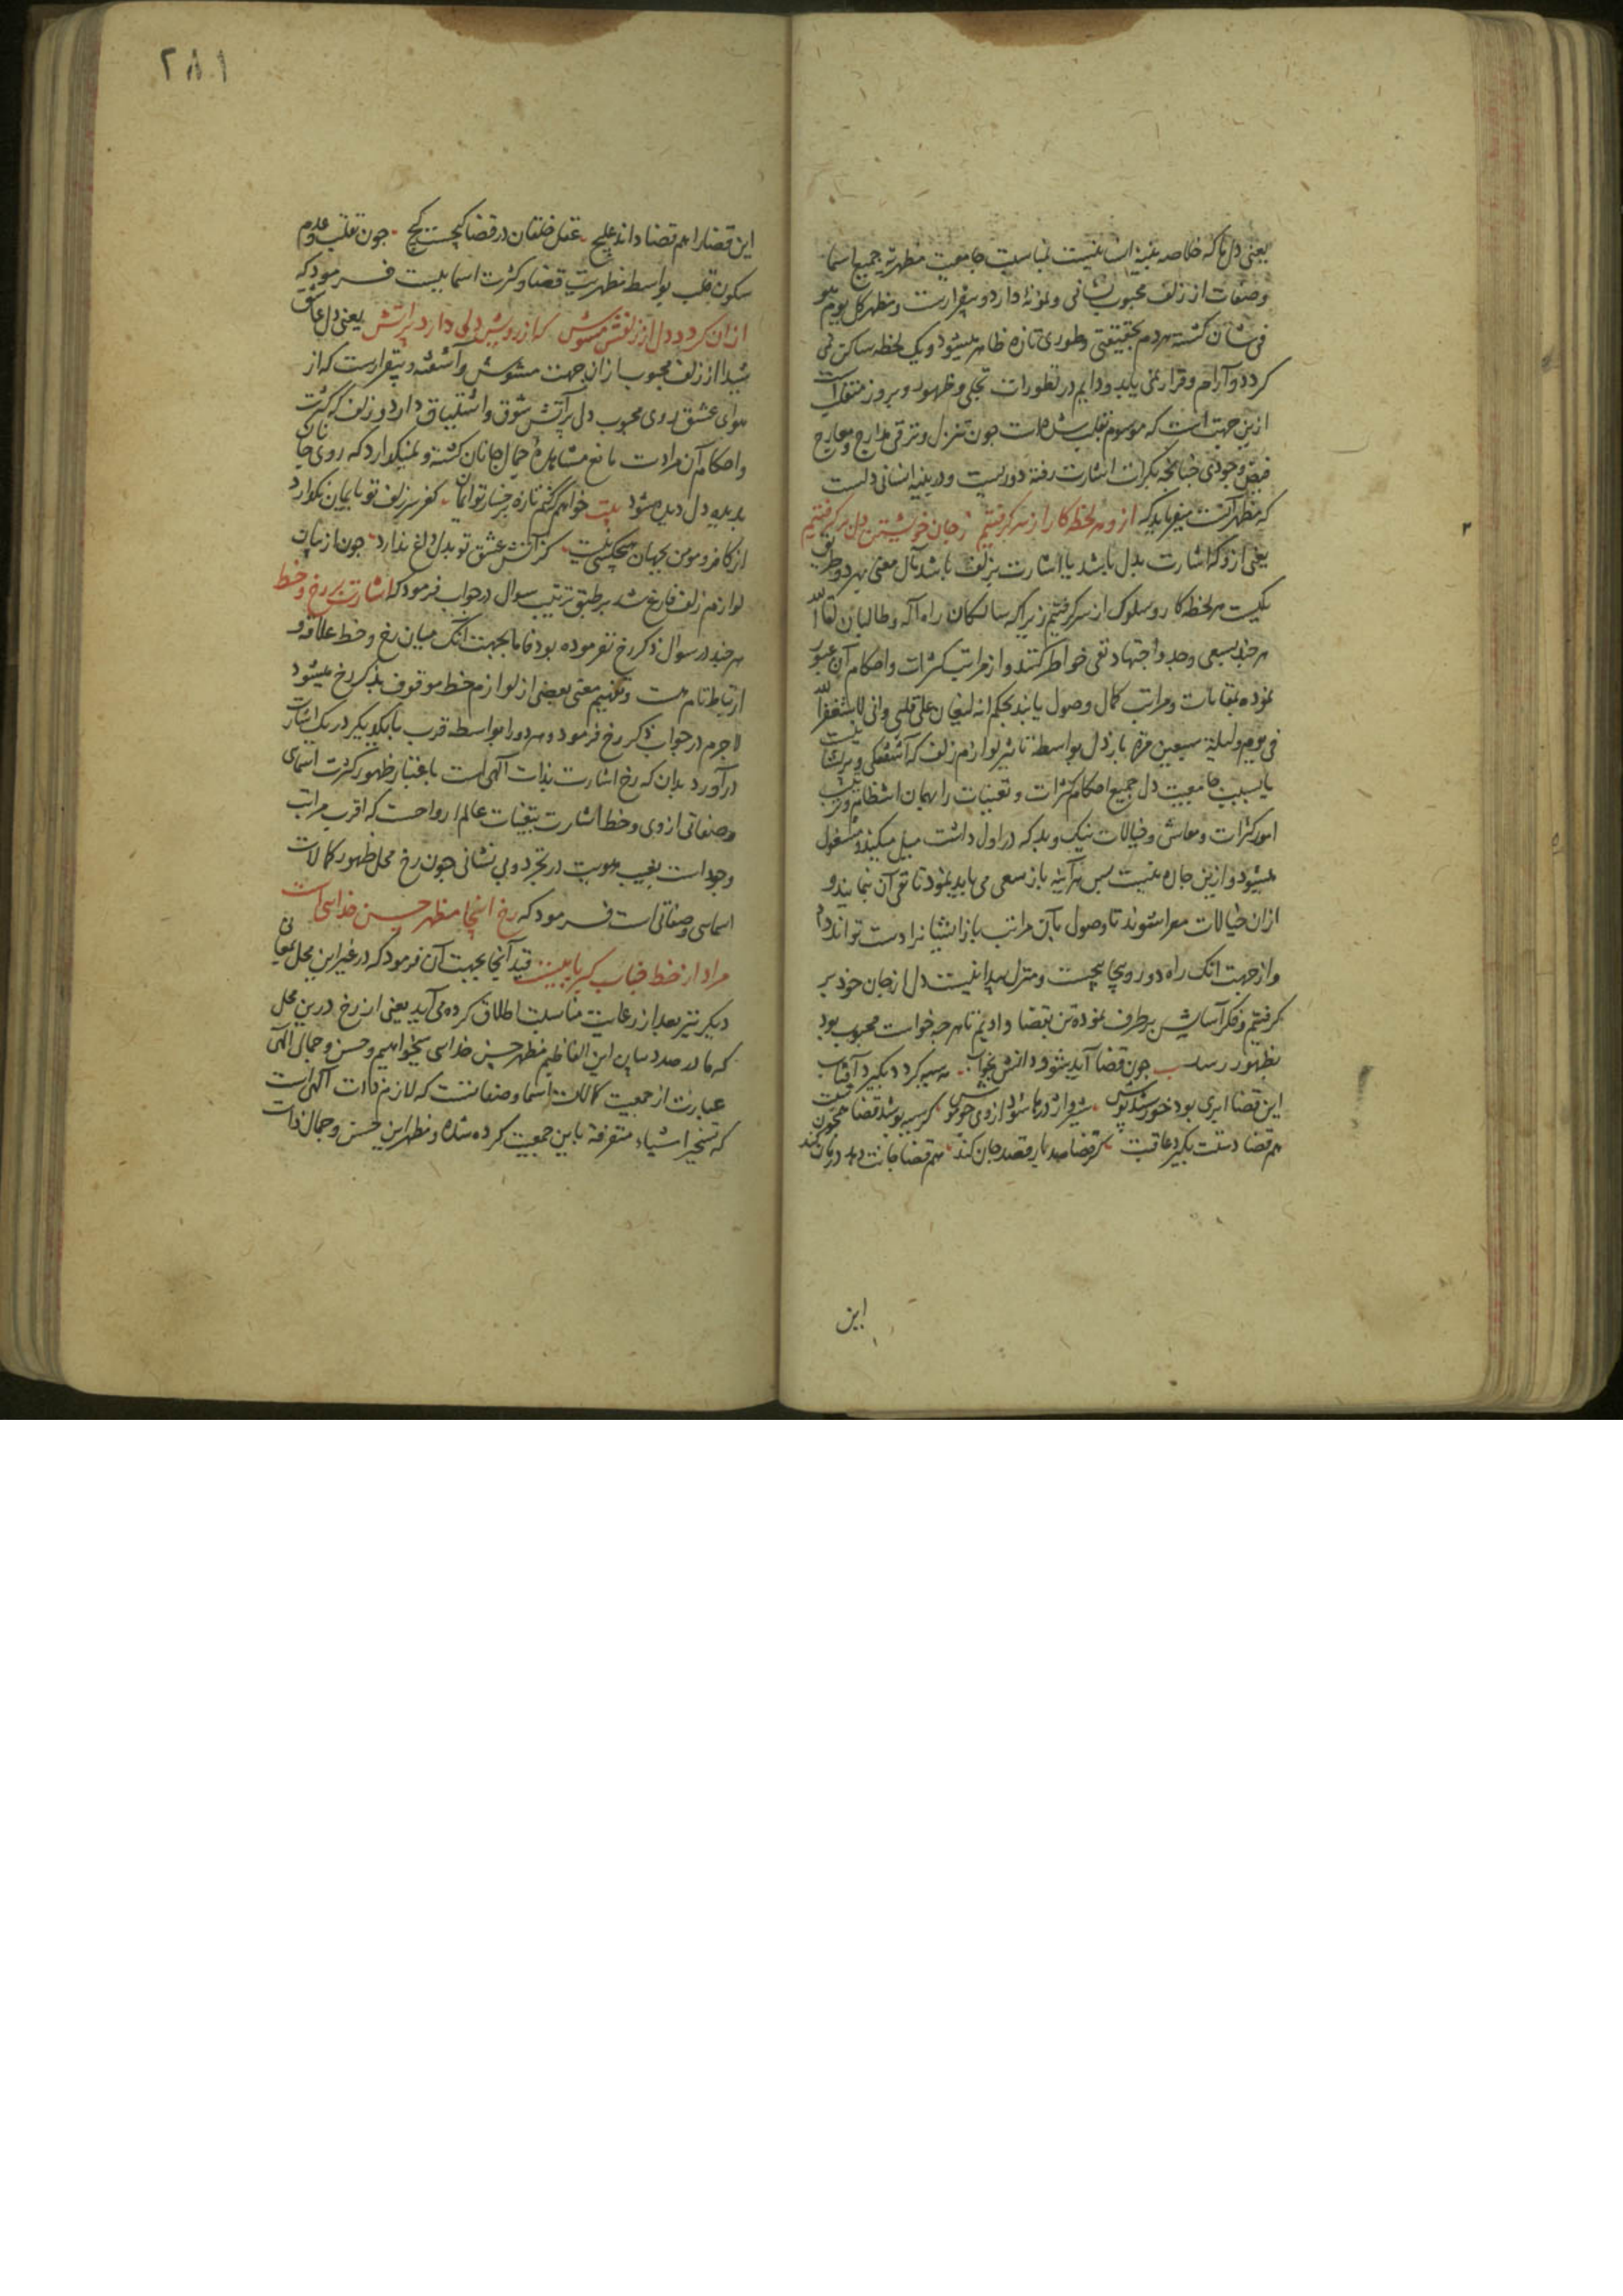 یعنی دل ما که خلاصه بنیه انسانیست بمناسبت جامعیت مظهریه جمیع اسما
و صفات از زلف محبوب نشانی و نمونهٔ دارد و بیقرارست و مظهر کل یوم هو
فی شان کشته هر دم بحقیقتی و طوری تازه ظاهر میشود و یک لحظه ساکن نمی
کردد و آرام و قرار نمی یابد و دایم در تطورات تجلی و ظهور و بروز منقلب است
ازین جهت است که موسوم بقلب شده است جون تنزل و ترقی مدارج و معارج
فیض وجودی جنانجه بکرات اشارت رفته دوریست و در بنیه انسانی دلست
که مظهر آنست میفرماید که ازو هر لحظه کار از سر کرفتیم ز جان خویشتن دل بر کرفتیم
یعنی ازو که اشارت بدل باشد یا اشارت بزلف باشد مآل معنی هر دو طریق
یکیست هر لحظه کار و سلوک از سر کرفتیم زیرا که سالکان راه اله و طالبان لقاء الله
هر جند بسعی و جد و اجتهاد نفی خواطر کنند و از مراتب کثرات و احکام آن عبور
نموده بمقامات و مراتب کمال وصول یابند بحکم انه لیغان علی قلبی وانی لاستغفر الله
فی یوم ولیلة سبعین مرة باز دل بواسطه تاثیر لوازم زلف که آشفتکی و پریشانیست
یا بسبب جامعیت دل جمیع احکام کثرات و تعینات را بهمان انتظام و ترتیب
امور کثرات و معاش و خیالات نیک و بد که در اول داشت میل میکند و مشغول
میشود و ازین جاره نیست بس هر آینه باز سعی می باید نمود تا نفی آن نمایند و
ازان خیالات معرا شوند تا وصول بآن مراتب باز ایشانرا دست تواند داد
و از جهت آنک راه دور و پیچاپیچست و منزل پیدا نیست دل از جان خود بر
کرفتیم و فکر آسایش برطرف نموده تن بقضا دادیم تا هر جه خواست محبوب بود
بظهور رسد جون قضا آید شود دانش بخواب مه سیه کردد بکیرد آفتاب
این قضا ابری بود خورشید پوش شیر و اژدرها شود ازوی جو موش کر سیه پوشد قضا همجون شبت
هم قضا دستت بکیرد عاقبت کر قضا صد بار قصد جان کند هم قضا جانت دهد درمان کند
این
۲۸۱
این قضا را هم قضا داند علاج عقل خلقان در قضا کیجست کیج جون تقلب و عدم
سکون قلب بواسطه مظهریت قضا و کثرت اسماییست فرمود که
ازان کردد دل از زلفش مشوش که از رویش دلی دارد بر آتش یعنی دل عاشق
شیدا از زلف محبوب ازان جهت مشوش و آشفته و بیقرارست که از
هوای عشق روی محبوب دل بر آتش شوق و اشتیاق دارد و زلف که کثرت
و احکام آن مرادست مانع مشاهدهٔ جمال جانان کشته و نمیکذارد که روی جانان
بدیده دل دیده شود بیت خواهم کنم تازه برخسار تو ایمان کفر سر زلف تو بایمان نکذارد
از کافر و مومن بجهان هیچکسی نیست کز آتش عشق تو بدل داغ ندارد جون از بیان
لوازم زلف فارغ شد بر طبق ترتیب سوال در جواب فرمود که اشارت برخ و خط
هر جند در سوال ذکر رخ نفرموده بود فاما بجهت آنک میان رخ و خط علاقه و
ارتباط تام هست و تفهیم معنی بعضی از لوازم خط موقوف بذکر رخ میشود
لاجرم در جواب ذکر رخ فرمود و هر دو را بواسطه قرب بایکدیکر در یک اشارت
درآورد بدان که رخ اشارت بذات آلهی است باعتبار ظهور کثرت اسمای
و صفاتی از وی و خط اشارت بتعینات عالم ارواحست که اقرب مراتب
وجود است بغیب هویت در تجرد و بی نشانی جون رخ محل ظهور کمالات
اسمایی و صفاتی است فرمود که رخ اینجا مظهر حسن خدایی است
مراد از خط جناب کبریاییست قید آنجا بجهت آن فرمود که در غیر این محل بمعانی
دیکر نیز بعد از رعایت مناسبت اطلاق کرده می آید یعنی از رخ درین محل
که ما در صدد بیان این الفاظیم مظهر حسن خدایی میخواهیم و حسن و جمال آلهی
عبارت از جمعیت کمالات اسما و صفاتست که لازم ذات آلهی است
که تسخیر اشیاء متفرقة باین جمعیت کرده شده و مظهر این حسن و جمال ذات